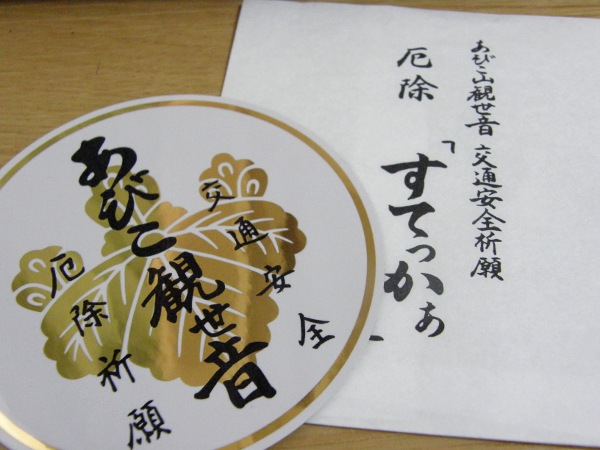 あびこ山観世音 交通安全祈願
厄除
「すてっかぁ」
交通安全
あびこ観世音
厄除祈願